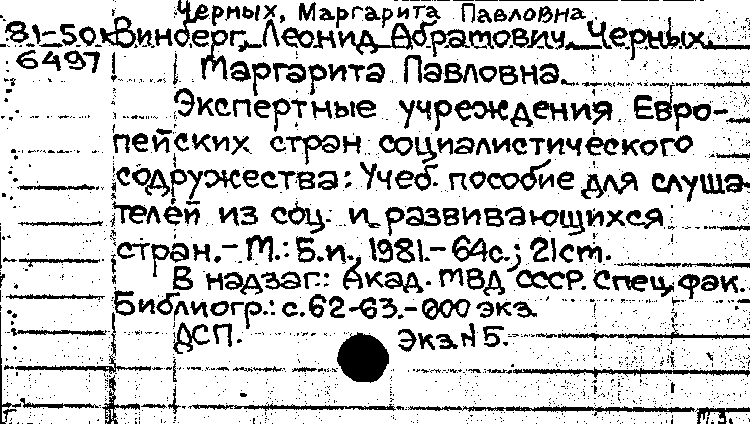 Черных, Маргарита Павловна
81-50к Винберг, Леонид Абрамович, Черных,
6497 Маргарита Павловна.
Экспертные учреждения Евро-
пейских стран социалистического
содружества: Учеб. пособие для слуша-
телей из соц. и развивающихся
стран.- М.: Б.и., 1981.- 64с.; 21см.
В надзаг.: Акад. МВД СССР. Спец. фак.
Библиогр.: с.62-63.- 000 экз.
ДСП. Экз.N 5.